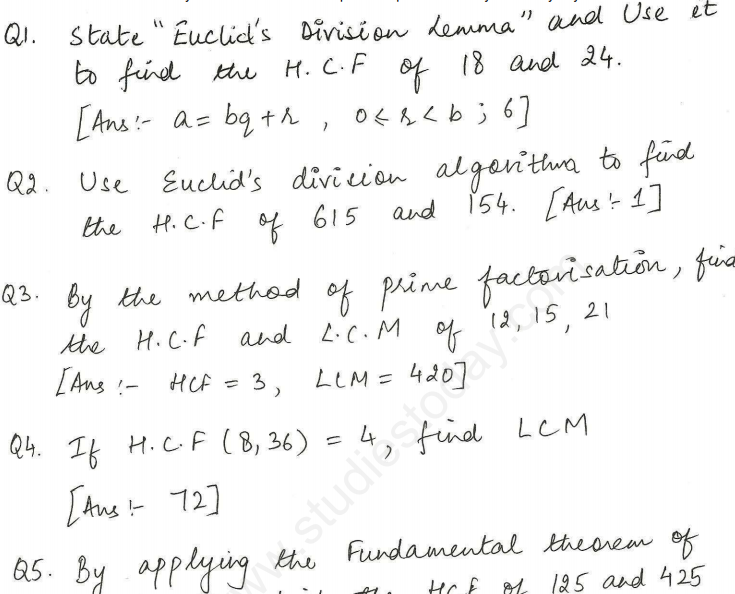 Q1. State "Euclid's Division Lemma" and Use it
to find the H.C.F of 18 and 24.
[Ans:- a = bq + r , 0 ≤ r < b ; 6]
Q2. Use Euclid's division algorithm to find
the H.C.F of 615 and 154. [Ans:- 1]
Q3. By the method of prime factorisation, find
the H.C.F and L.C.M of 12, 15, 21
[Ans:- HCF = 3, LCM = 420]
Q4. If H.C.F (8,36) = 4, find LCM
[Ans:- 72]
Q5. By applying the Fundamental theorem of
the HCF of 125 and 425
www.studiestoday.com